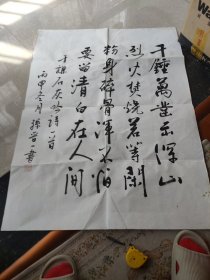 千錘萬鑿出深山
烈火焚燒若等閑
粉身碎骨渾不怕
要留清白在人間
于謙石灰吟詩一首
丙申冬月